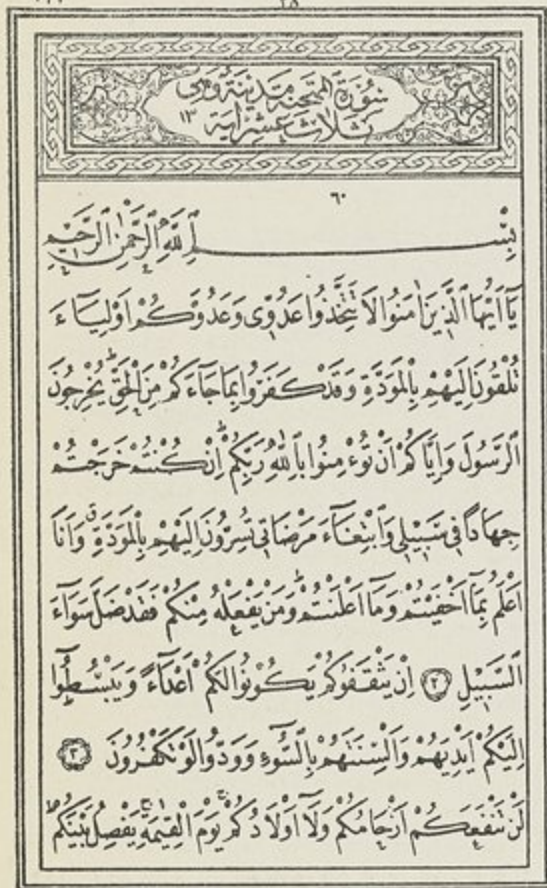 سُورَةُ الْمُمْتَحِنَةِ مَدَنِيَّةٌ وَهِىَ
ثَلَاثَ عَشَرَ اٰيَةً ١٣
٦٠
بِسْــــــــــمِ اللّٰهِ الرَّحْمٰنِ الرَّحٖيمِ
يَٓا اَيُّهَا الَّذٖينَ اٰمَنُوا لَا تَتَّخِذُوا عَدُوّٖى وَعَدُوَّكُمْ اَوْلِيَٓاءَ
تُلْقُونَ اِلَيْهِمْ بِالْمَوَدَّةِ وَقَدْ كَفَرُوا بِمَا جَٓاءَكُمْ مِنَ الْحَقِّ يُخْرِجُونَ
الرَّسُولَ وَاِيَّاكُمْ اَنْ تُؤْمِنُوا بِاللّٰهِ رَبِّكُمْ اِنْ كُنْتُمْ خَرَجْتُمْ
جِهَادًا فٖى سَبٖيلٖى وَابْتِغَٓاءَ مَرْضَاتٖى تُسِرُّونَ اِلَيْهِمْ بِالْمَوَدَّةِ وَاَنَا
اَعْلَمُ بِمَٓا اَخْفَيْتُمْ وَمَٓا اَعْلَنْتُمْ وَمَنْ يَفْعَلْهُ مِنْكُمْ فَقَدْ ضَلَّ سَوَٓاءَ
السَّبٖيلِ ٢ اِنْ يَثْقَفُوكُمْ يَكُونُوا لَكُمْ اَعْدَٓاءً وَيَبْسُطُٓوا
اِلَيْكُمْ اَيْدِيَهُمْ وَاَلْسِنَتَهُمْ بِالسُّٓوءِ وَوَدُّوا لَوْ تَكْفُرُونَ ٣
لَنْ تَنْفَعَكُمْ اَرْحَامُكُمْ وَلَٓا اَوْلَادُكُمْ يَوْمَ الْقِيٰمَةِ يَفْصِلُ بَيْنَكُمْ